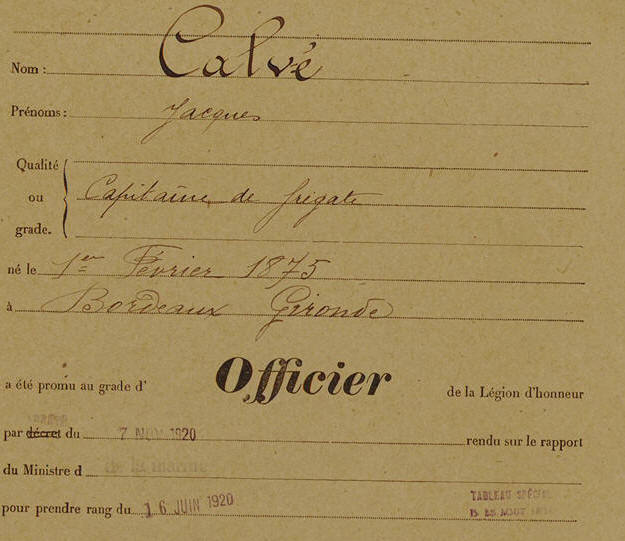 Nom : Calvé
Prénoms : Jacques
Qualité
ou Capitaine de frégate
grade.
né le 1er Février 1875
à Bordeaux Gironde
a été promu au grade d' Officier de la Légion d'honneur
par décret du 7 NOV 1920 rendu sur le rapport
du Ministre d de la marine
pour prendre rang du 16 JUIN 1920
TABLEAU SPÉCIAL
AOUT